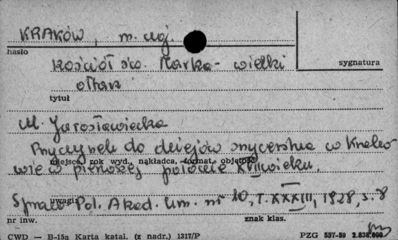 KRAKÓW, m. woj.
hasło
Kościół św. Marka - wielki
sygnatura
ołtarz
tytuł
M. Jarosławiecka
Przyczynek do dziejów snycerstwa w Krako-
miejsce, rok wyd., nakładca, format, objętość
wie w pierwszej połowie XVII wieku.
uwagi
Spraw. Pol. Akad. Um. nr 10, T. XXXIII, 1928, s. 8
nr inw.
znak klas.
CWD — B-15a Karta katal. (z nadr.) 1317/P
PZG 537-59